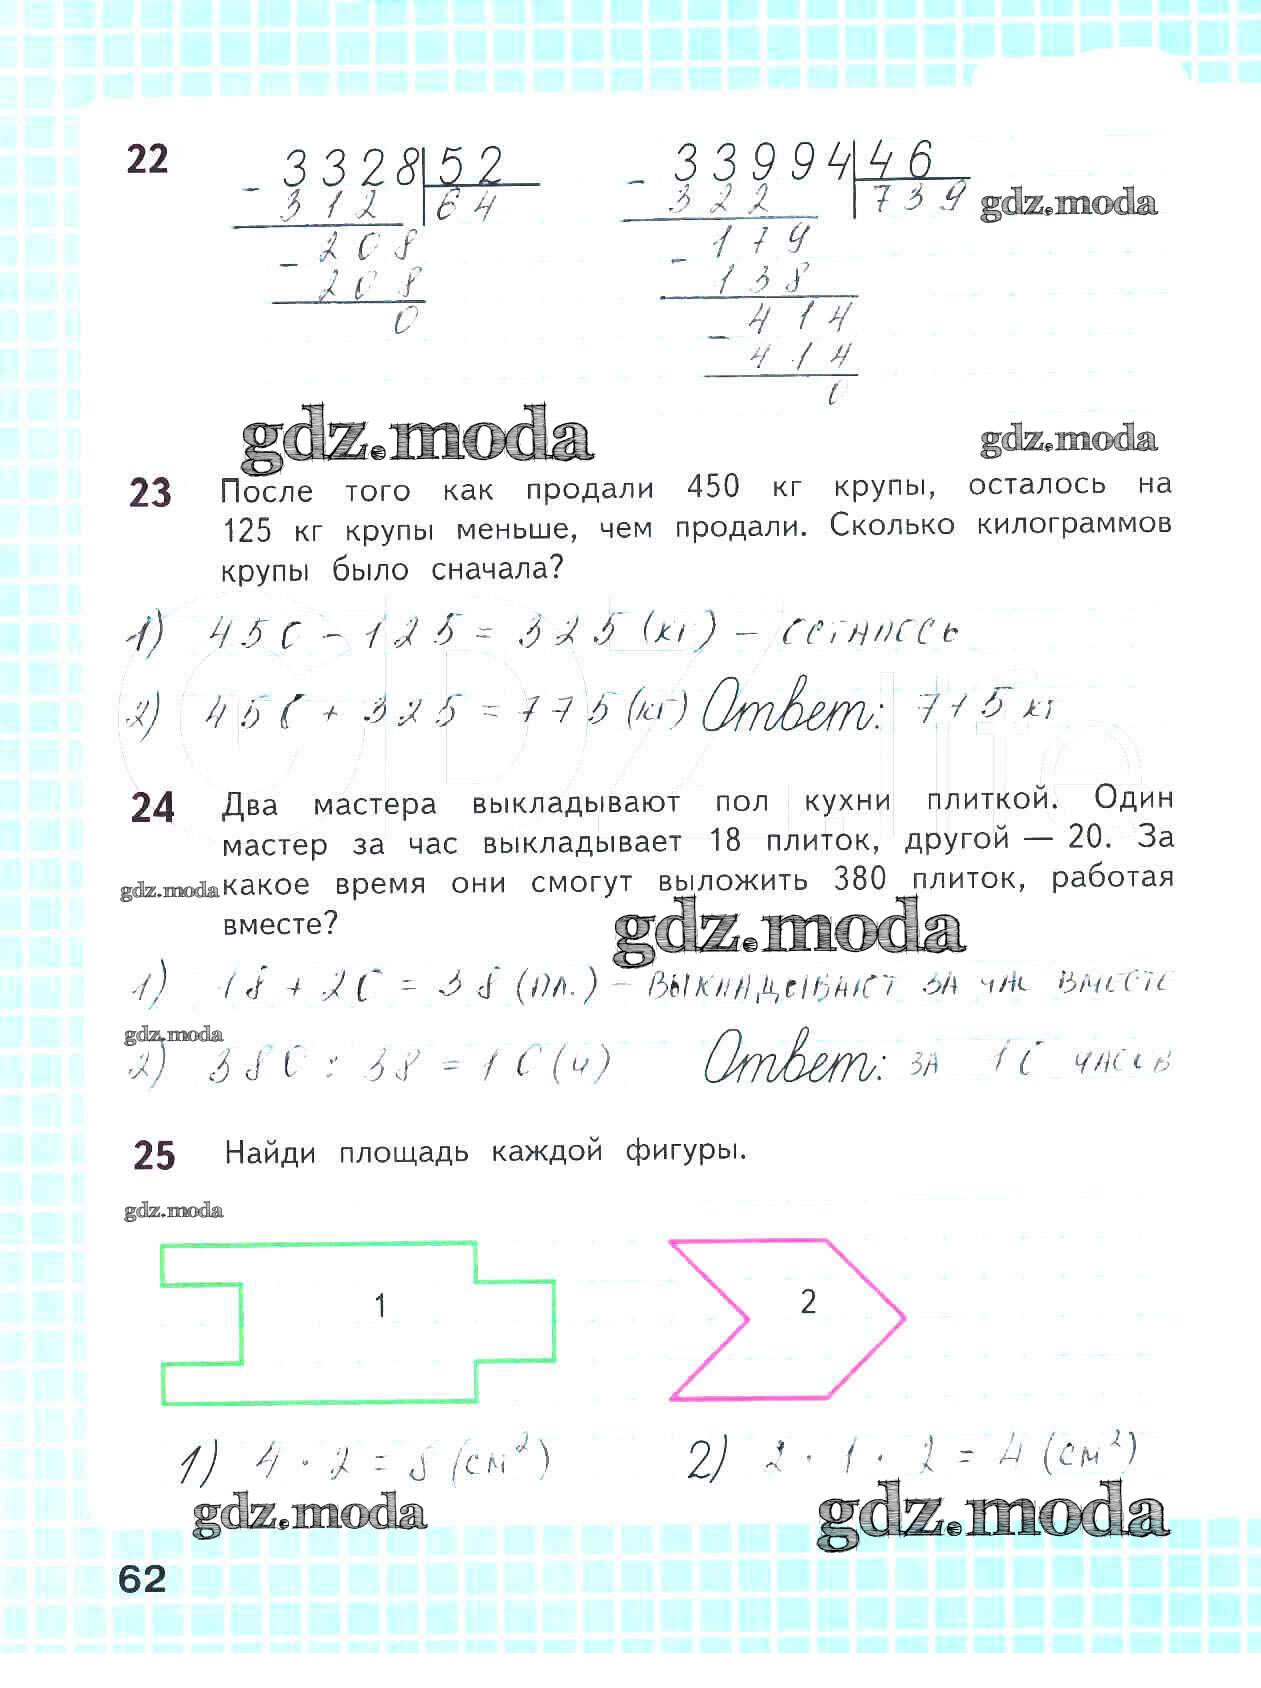 22
3328|52 33994|46
- 312 64 - 322 739 gdz.moda
208 179
- 208 - 138
0 414
- 414
0
gdz.moda gdz.moda
23 После того как продали 450 кг крупы, осталось на
125 кг крупы меньше, чем продали. Сколько килограммов
крупы было сначала?
1) 450 - 125 = 325 (кг) - осталось
2) 450 + 325 = 775 (кг) Ответ: 775 кг
GDZ.life
24 Два мастера выкладывают пол кухни плиткой. Один
мастер за час выкладывает 18 плиток, другой — 20. За
gdz.moda какое время они смогут выложить 380 плиток, работая
вместе?
gdz.moda
1) 18 + 20 = 38 (пл.) - выкладывают за час вместе
gdz.moda
2) 380 : 38 = 10 (ч) Ответ: за 10 часов
25 Найди площадь каждой фигуры.
gdz.moda
1 2
1) 4 · 2 = 8 (см²) 2) 2 · 1 · 2 = 4 (см²)
gdz.moda gdz.moda
62